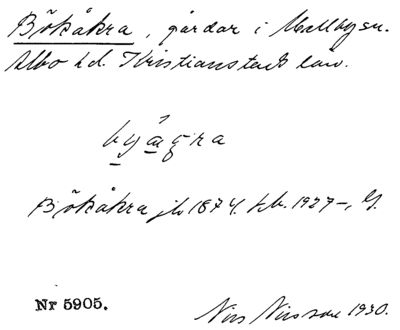 Bökåkra, gårdar i Mellby sn.
Albo hd. Kristianstads län.
byágra
Bökåkra jb 1874. kb. 1927–, G.
Nr 5905.
Nils Nilsson 1930.